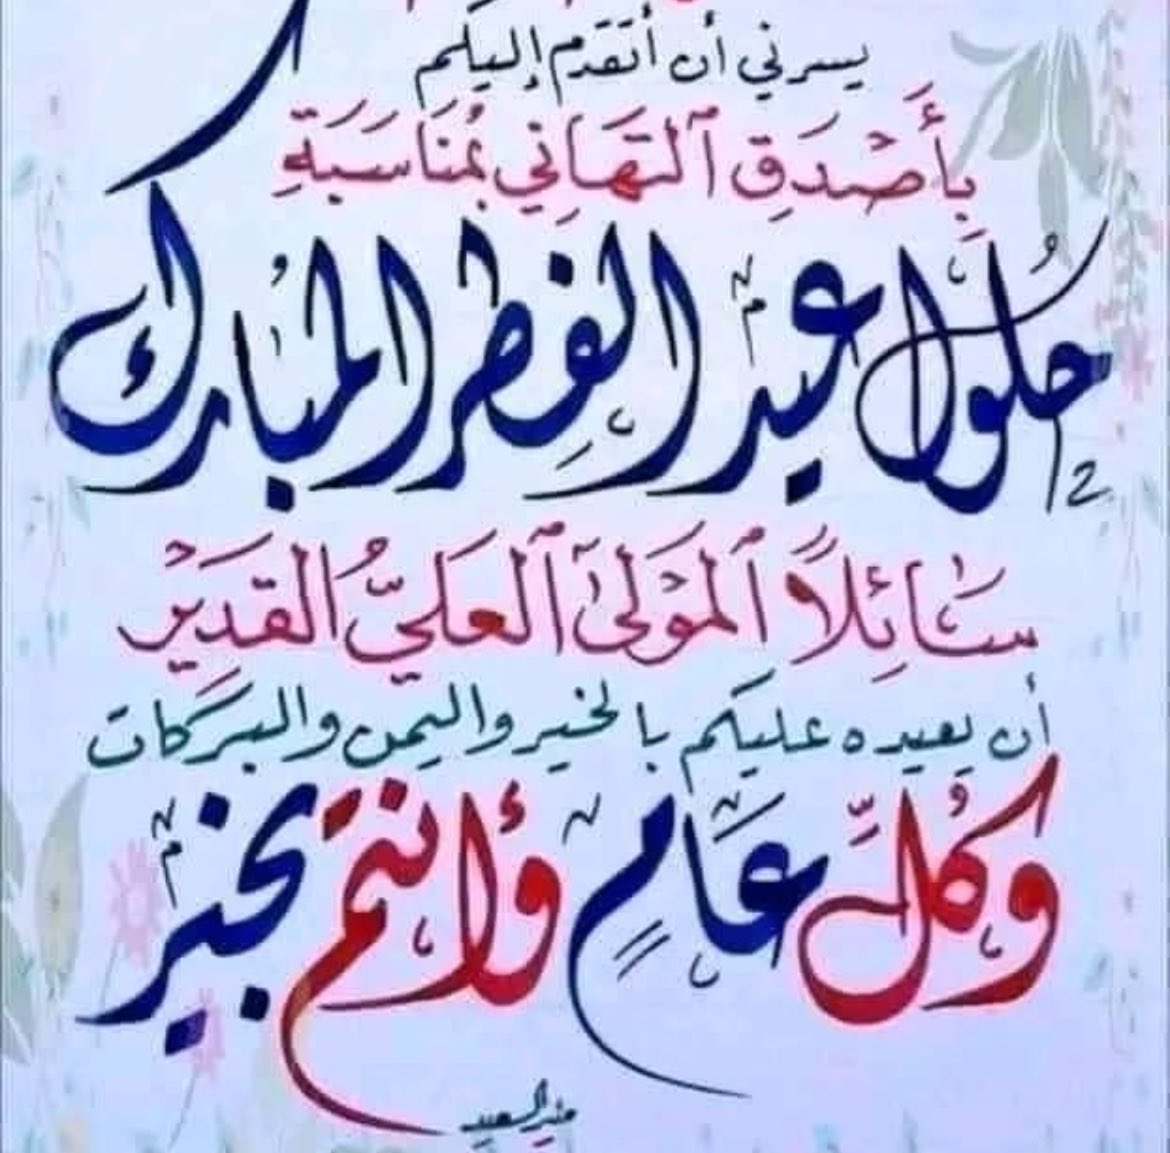 يسرني أن أتقدم إليكم
بِأَصْدَقِ ٱلتَهَانِي بمُنَاسَبَةِ
حلُولِ عيد الفِطر المُبارك
سَائِلاً ٱلمَوْلىَ ٱلعَليُّ القَدِيْر
أن يعيده عليكم بالخير واليمن والبركات
وكُلَّ عَامٍ وأنتم بخير
منير السعيد